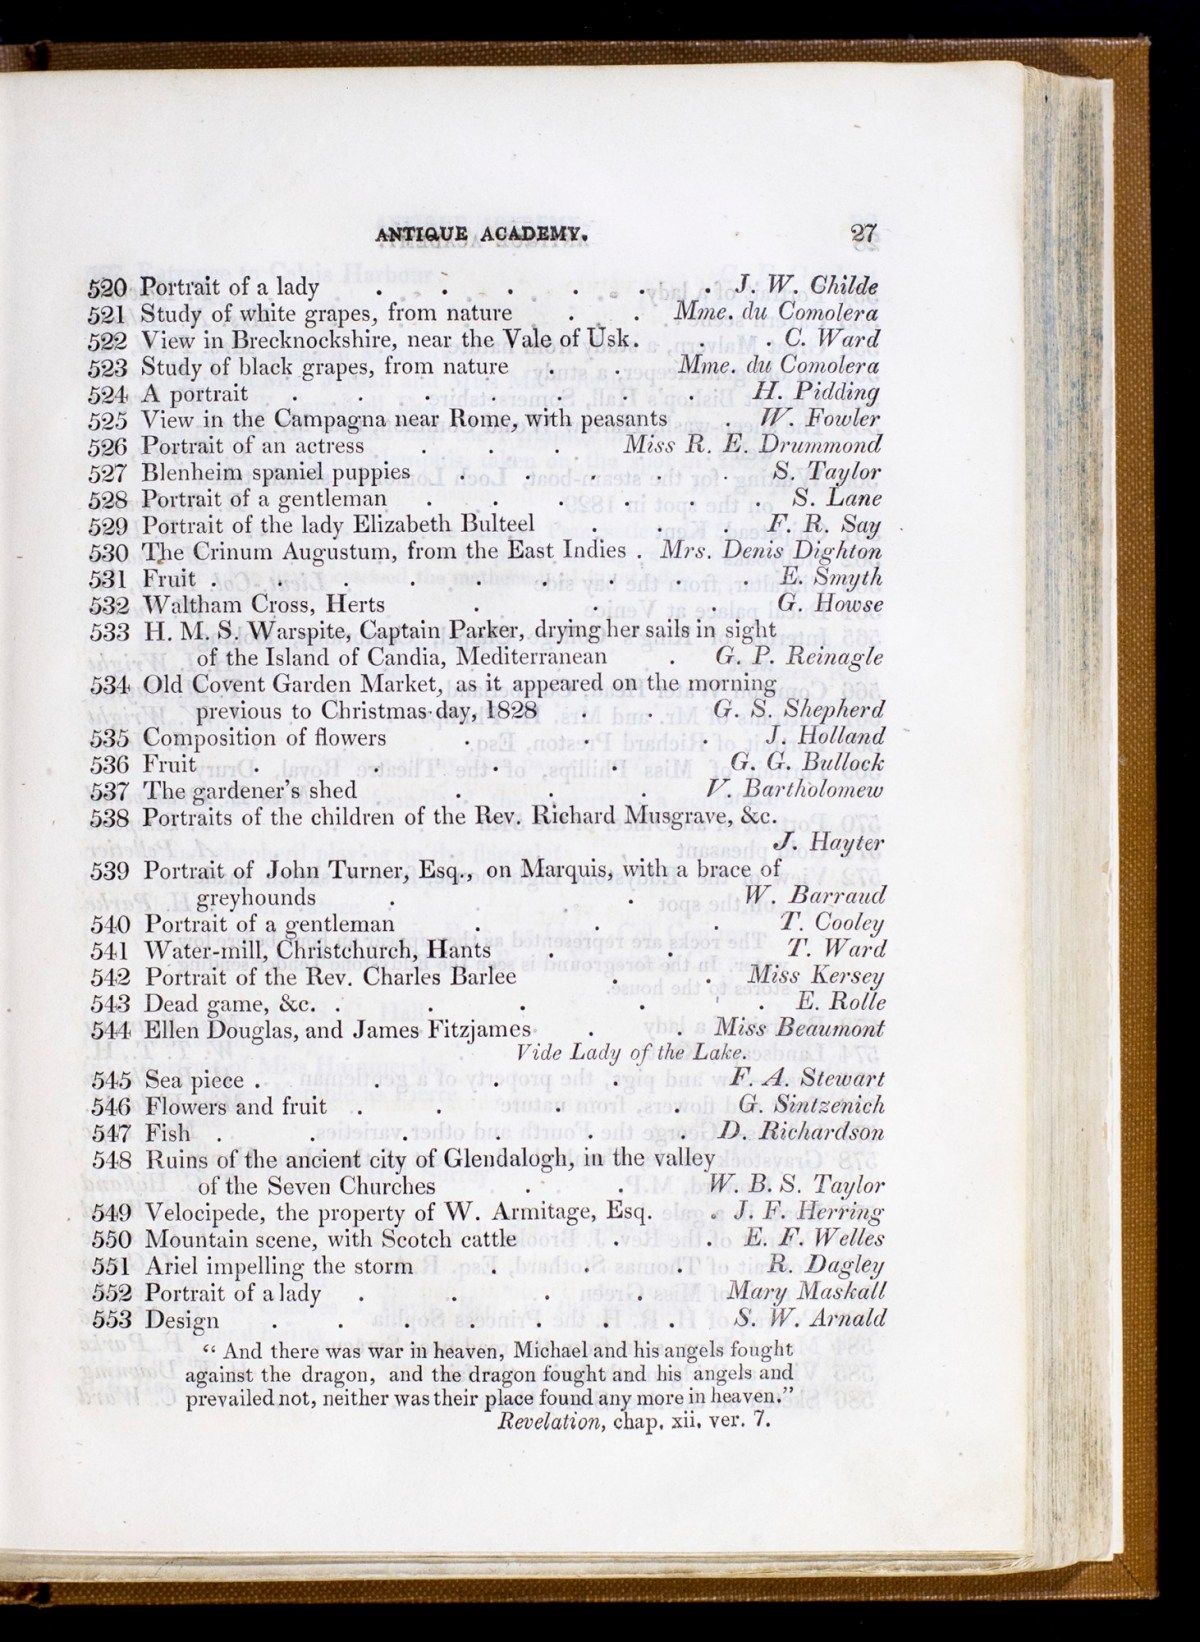 ANTIQUE ACADEMY. 27
520 Portrait of a lady . . . . . . J. W. Childe
521 Study of white grapes, from nature . . Mme. du Comolera
522 View in Brecknockshire, near the Vale of Usk. . . C. Ward
523 Study of black grapes, from nature . . Mme. du Comolera
524 A portrait . . . . . . . H. Pidding
525 View in the Campagna near Rome, with peasants . W. Fowler
526 Portrait of an actress . . . Miss R. E. Drummond
527 Blenheim spaniel puppies . . . . . S. Taylor
528 Portrait of a gentleman . . . . . . S. Lane
529 Portrait of the lady Elizabeth Bulteel . . . F. R. Say
530 The Crinum Augustum, from the East Indies . Mrs. Denis Dighton
531 Fruit . . . . . . . . . E. Smyth
532 Waltham Cross, Herts . . . G. Howse
533 H. M. S. Warspite, Captain Parker, drying her sails in sight
of the Island of Candia, Mediterranean . G. P. Reinagle
534 Old Covent Garden Market, as it appeared on the morning
previous to Christmas-day, 1828 . . G. S. Shepherd
535 Composition of flowers . . . J. Holland
536 Fruit . . . . G. G. Bullock
537 The gardener's shed . . . V. Bartholomew
538 Portraits of the children of the Rev. Richard Musgrave, &c.
J. Hayter
539 Portrait of John Turner, Esq., on Marquis, with a brace of
greyhounds . . W. Barraud
540 Portrait of a gentleman . . . T. Cooley
541 Water-mill, Christchurch, Hants . . . T. Ward
542 Portrait of the Rev. Charles Barlee . . Miss Kersey
543 Dead game, &c. . . . . . E. Rolle
544 Ellen Douglas, and James Fitzjames . . Miss Beaumont
Vide Lady of the Lake.
545 Sea piece . . . . F. A. Stewart
546 Flowers and fruit . . . . G. Sintzenich
547 Fish . . . . . . D. Richardson
548 Ruins of the ancient city of Glendalogh, in the valley
of the Seven Churches . . W. B. S. Taylor
549 Velocipede, the property of W. Armitage, Esq. . J. F. Herring
550 Mountain scene, with Scotch cattle . . E. F. Welles
551 Ariel impelling the storm . . . R. Dagley
552 Portrait of a lady . . . . Mary Maskall
553 Design . . . . . . . S. W. Arnald
“ And there was war in heaven, Michael and his angels fought
against the dragon, and the dragon fought and his angels and
prevailed not, neither was their place found any more in heaven.”
Revelation, chap. xii. ver. 7.